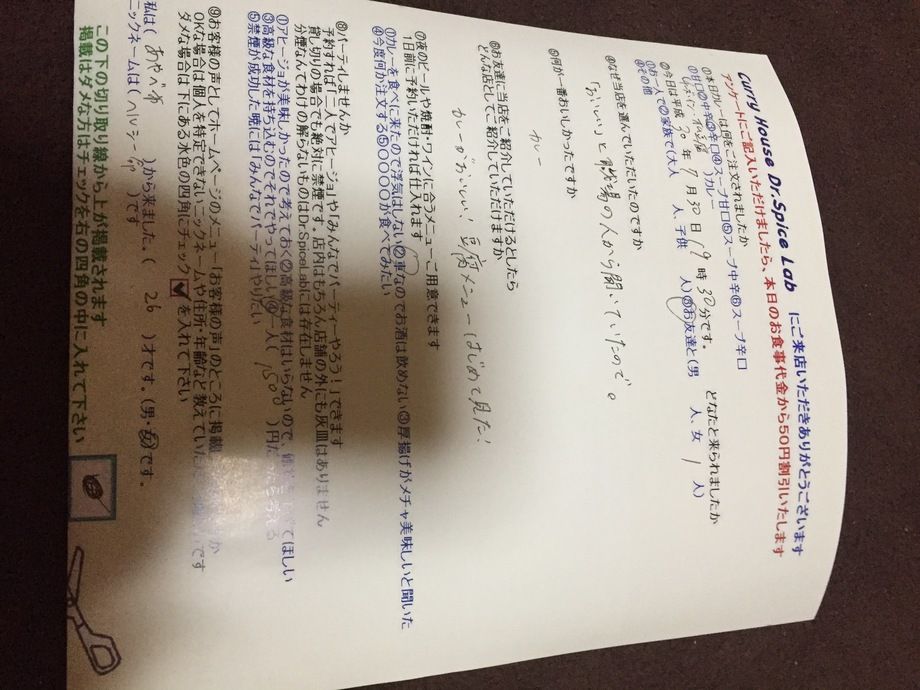 Curry House Dr.Spice Lab にご来店いただきありがとうございます
アンケートにご記入いただけましたら、本日のお食事代金から50円割引いたします
①本日カレーは何をご注文されましたか
①甘口②中辛③辛口④スープ甘口⑤スープ中辛⑥スープ辛口
)カレー
②今日は平成 30 年 9 月 30 日 19 時 30 分です。 どなたと来られましたか
①お一人で②家族で(大人 人、子供 人)③お友達と(男 人、女 1 人)
④その他
④なぜ当店を選んでいただいたのですか
「おいしい」と職場の人から聞いていたので。
⑤何が一番おいしかったですか
カレー
⑥お友達に当店をご紹介していただけるとしたら
どんな店としてご紹介していただけますか
カレーがおいしい! 豆腐メニューはじめて見た!
⑦夜のビールや焼酎・ワインに合うメニューご用意できます
1日前に予約いただければ仕入れます
①カレーを食べに来たので浮気はしない②車なのでお酒は飲めない③厚揚げがメチャ美味しいと聞いた
④今度何か注文する⑤〇〇〇〇〇が食べてみたい
⑧パーティしませんか
予約すれば「二人でアヒージョ」や「みんなでパーティーやろう!」できます
貸し切りの場合でも絶対に禁煙です。店内はもちろん店舗の外にも灰皿はありません
分煙なんてわけの解らないものはDr.SpiceLabには存在しません
①アヒージョが美味しかったので考えておく②高級な食材はいらないので、 てほしい
③高級な食材を持ち込むのでそれでやってほしい④一人( 1500 )円だ
⑤禁煙が成功した晩には「みんなでパーティ」やりたい
⑨お客様の声としてホームページのメニュー「お客様の声」のところに掲載 か
OKな場合は個人を特定できないニックネームや住所・年齢など教えていた です
ダメな場合は下にある水色の四角にチェック を入れて下さい
私は( あやべ市 )から来ました。( 26 )才です。(男・女)です。
ニックネームは( ヘルシー )です
この下の切り取り線から上が掲載されます
掲載はダメな方はチェックを右の四角の中に入れて下さい